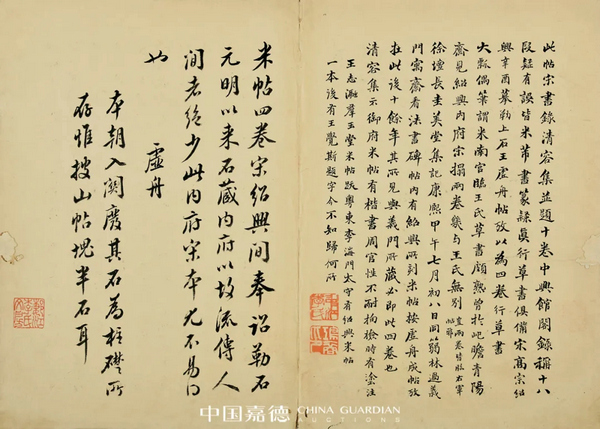 此帖宗書錄清容集並題十卷中興館閣錄稱十八
段疑有誤皆米芾書篆隸真行草書俱備宋高宗紹
興辛酉摹勒上石王虛舟帖攷以為四卷行草書
大瓢偶筆謂米南宮臨王氏草書頗熟嘗於屺瞻青陽
齋見紹興內府宗搨兩卷幾与王氏無別
徐壇長圭美堂集記康熙甲午七月初八日同蒻林過義
門齋看法書碑帖內有紹興所刻米帖按虛舟成帖攷
在此後十餘年其所見與義門所藏必即此四卷也
清容集云御府米帖有楷書周官性不耐拘檢時有塗注
王志瀜羣玉堂米帖跋粵東李海門太守有紹興米帖
一本後有王覺斯題字今不知歸何所
米帖四卷宋紹興間奉詔勒石
元明以来石藏内府以故流傳人
間者絶少此内府宋本尤不易得
也
虛舟
本朝入関廢其石為柱礎所
存惟搜山帖塊半石耳
中国嘉德 CHINA GUARDIAN
AUCTIONS